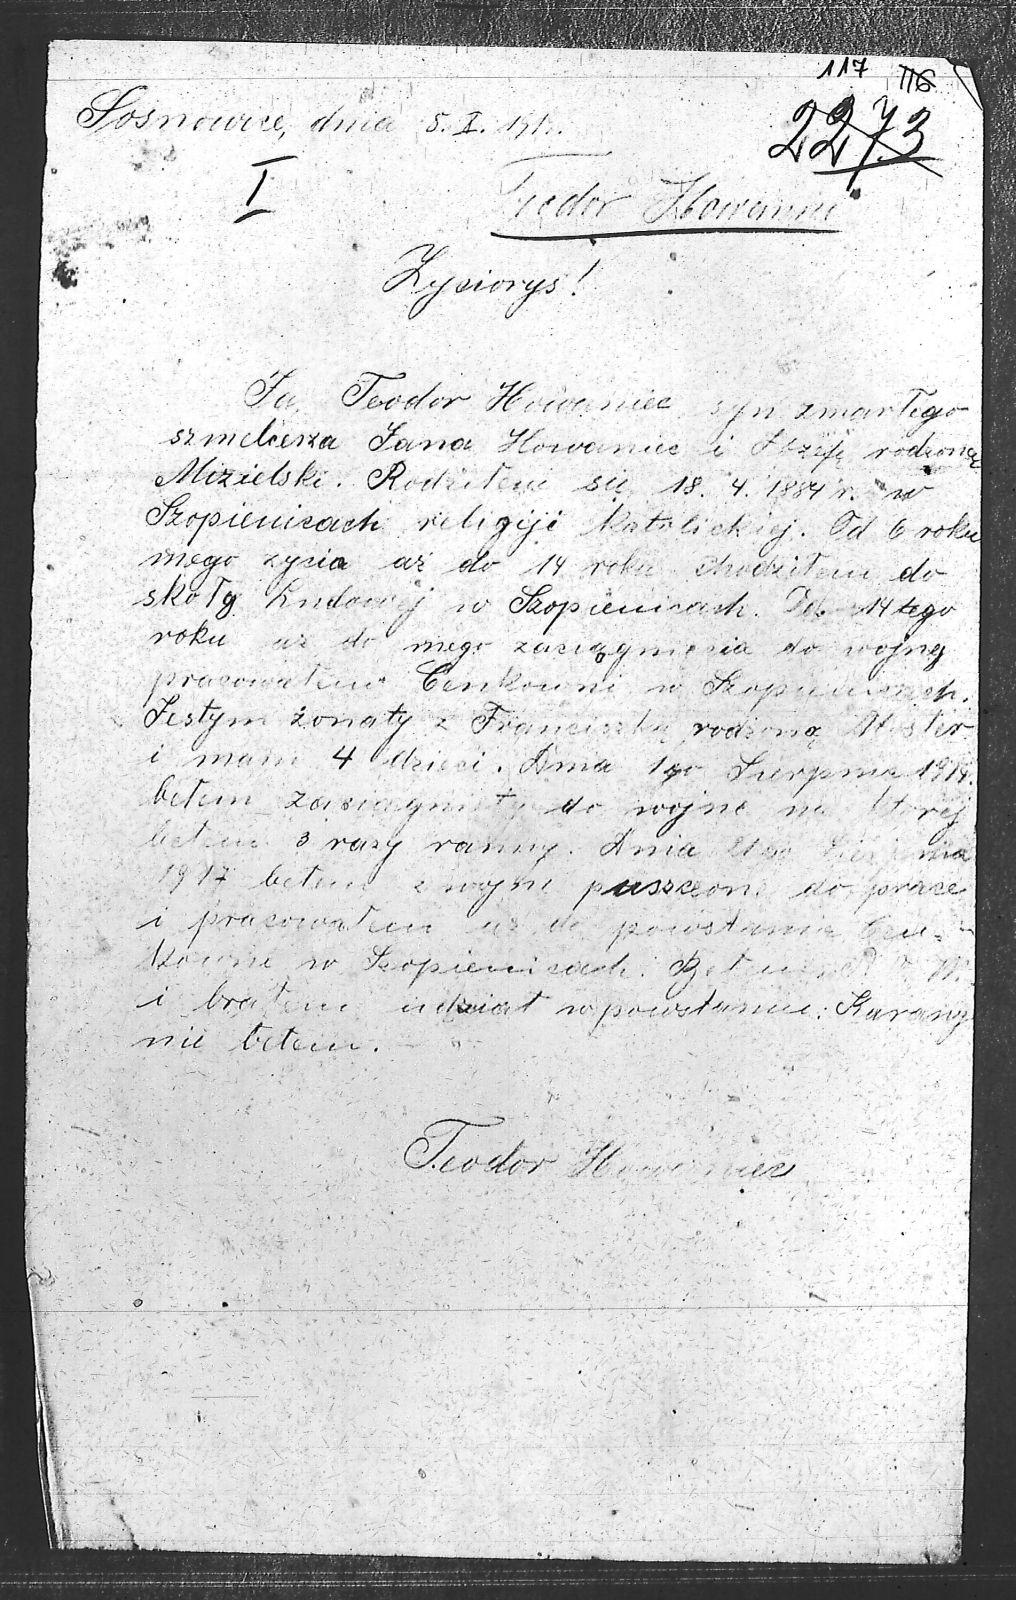 117 116
2273
Sosnowice, dnia 8. X. 191
I
Teodor Howanie
Zyciorys!
Ja Teodor Howaniec syn zmarłego
szmelcerza Jana Howaniec i Józefę rodzoną
Mizielski. Rodziłem się 18. 4. 1884 r. w
Szopienicach religiji Katolickiej. Od 6 roku
mego zycia aż do 14 roku chodziłem do
skoły Ludowej w Szopienicach. Od 14tego
roku aż do mego zaciągniecia do wojny
pracowałem Cenkowni w Szopienicach.
Jestym żonaty z Franciszką rodzoną
i mam 4 dzieci. Dnia 1go Sierpnia 1914.
betem zaciągnięty do wojne na ktorej
betem 3 razy ranny. Dnia 21go
1917 betem z wojne pusszone do prace
i pracowałem aż do powstania Cen-
kowne w Szopienicach. Betem
i brałem udział w powstaniu: Karany
nie betem.
Teodor Howaniec